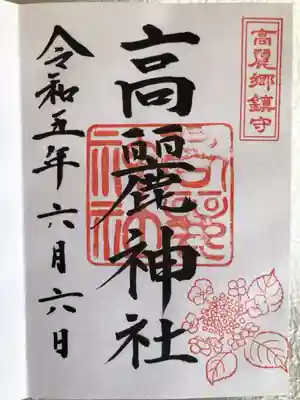 高麗郷鎮守
高麗神社
令和五年六月六日
高麗
神社